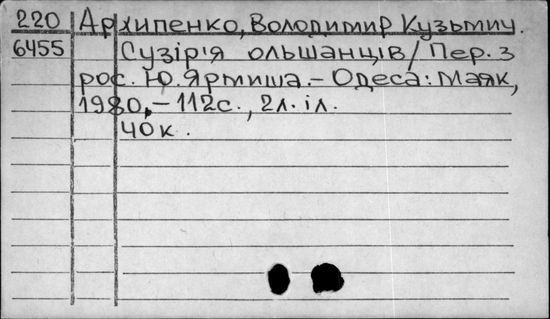 220 Архипенко, Володимир Кузьмич.
6455 Сузір'я ольшанців / Пер. з
рос. Ю. Ярмиша. – Одеса: Маяк,
1980. – 112с., 2л. іл.
40к.